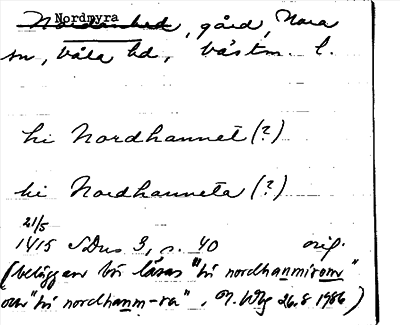 Nordmyra
, gård, Nora
sn, Våla hd, Västm. l.
hi Nordhannet (?)
hi Nordhanneta (?)
21/5
1415 SDns 3, s. 40 orig.
(beläggen bör läsas "hi nordhanmirom"
och "hi nordhanm-ra". M. Wbg 26.8 1986)